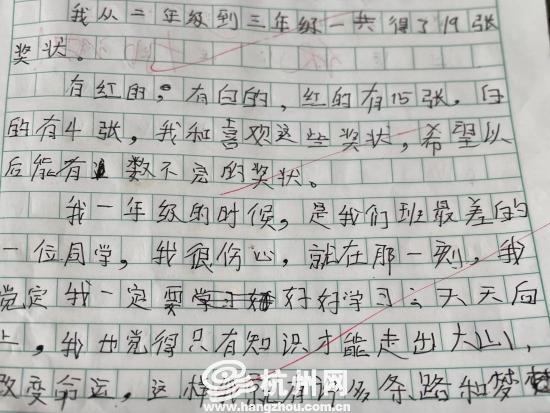 我从二年级到三年级一共得了19张
奖状。
有红的；有白的，红的有15张，白
的有4张，我和喜欢这些奖状，希望以
后能有 数不完的奖状。
我一年级的时候，是我们班最差的
一位同学，我很伤心，就在那一刻，我
觉定我一定要 好好学习，天天向
上，我也觉得只有知识才能走出大山，
改变命运，这样 多条路和梦
杭州网
www.hangzhou.com.cn